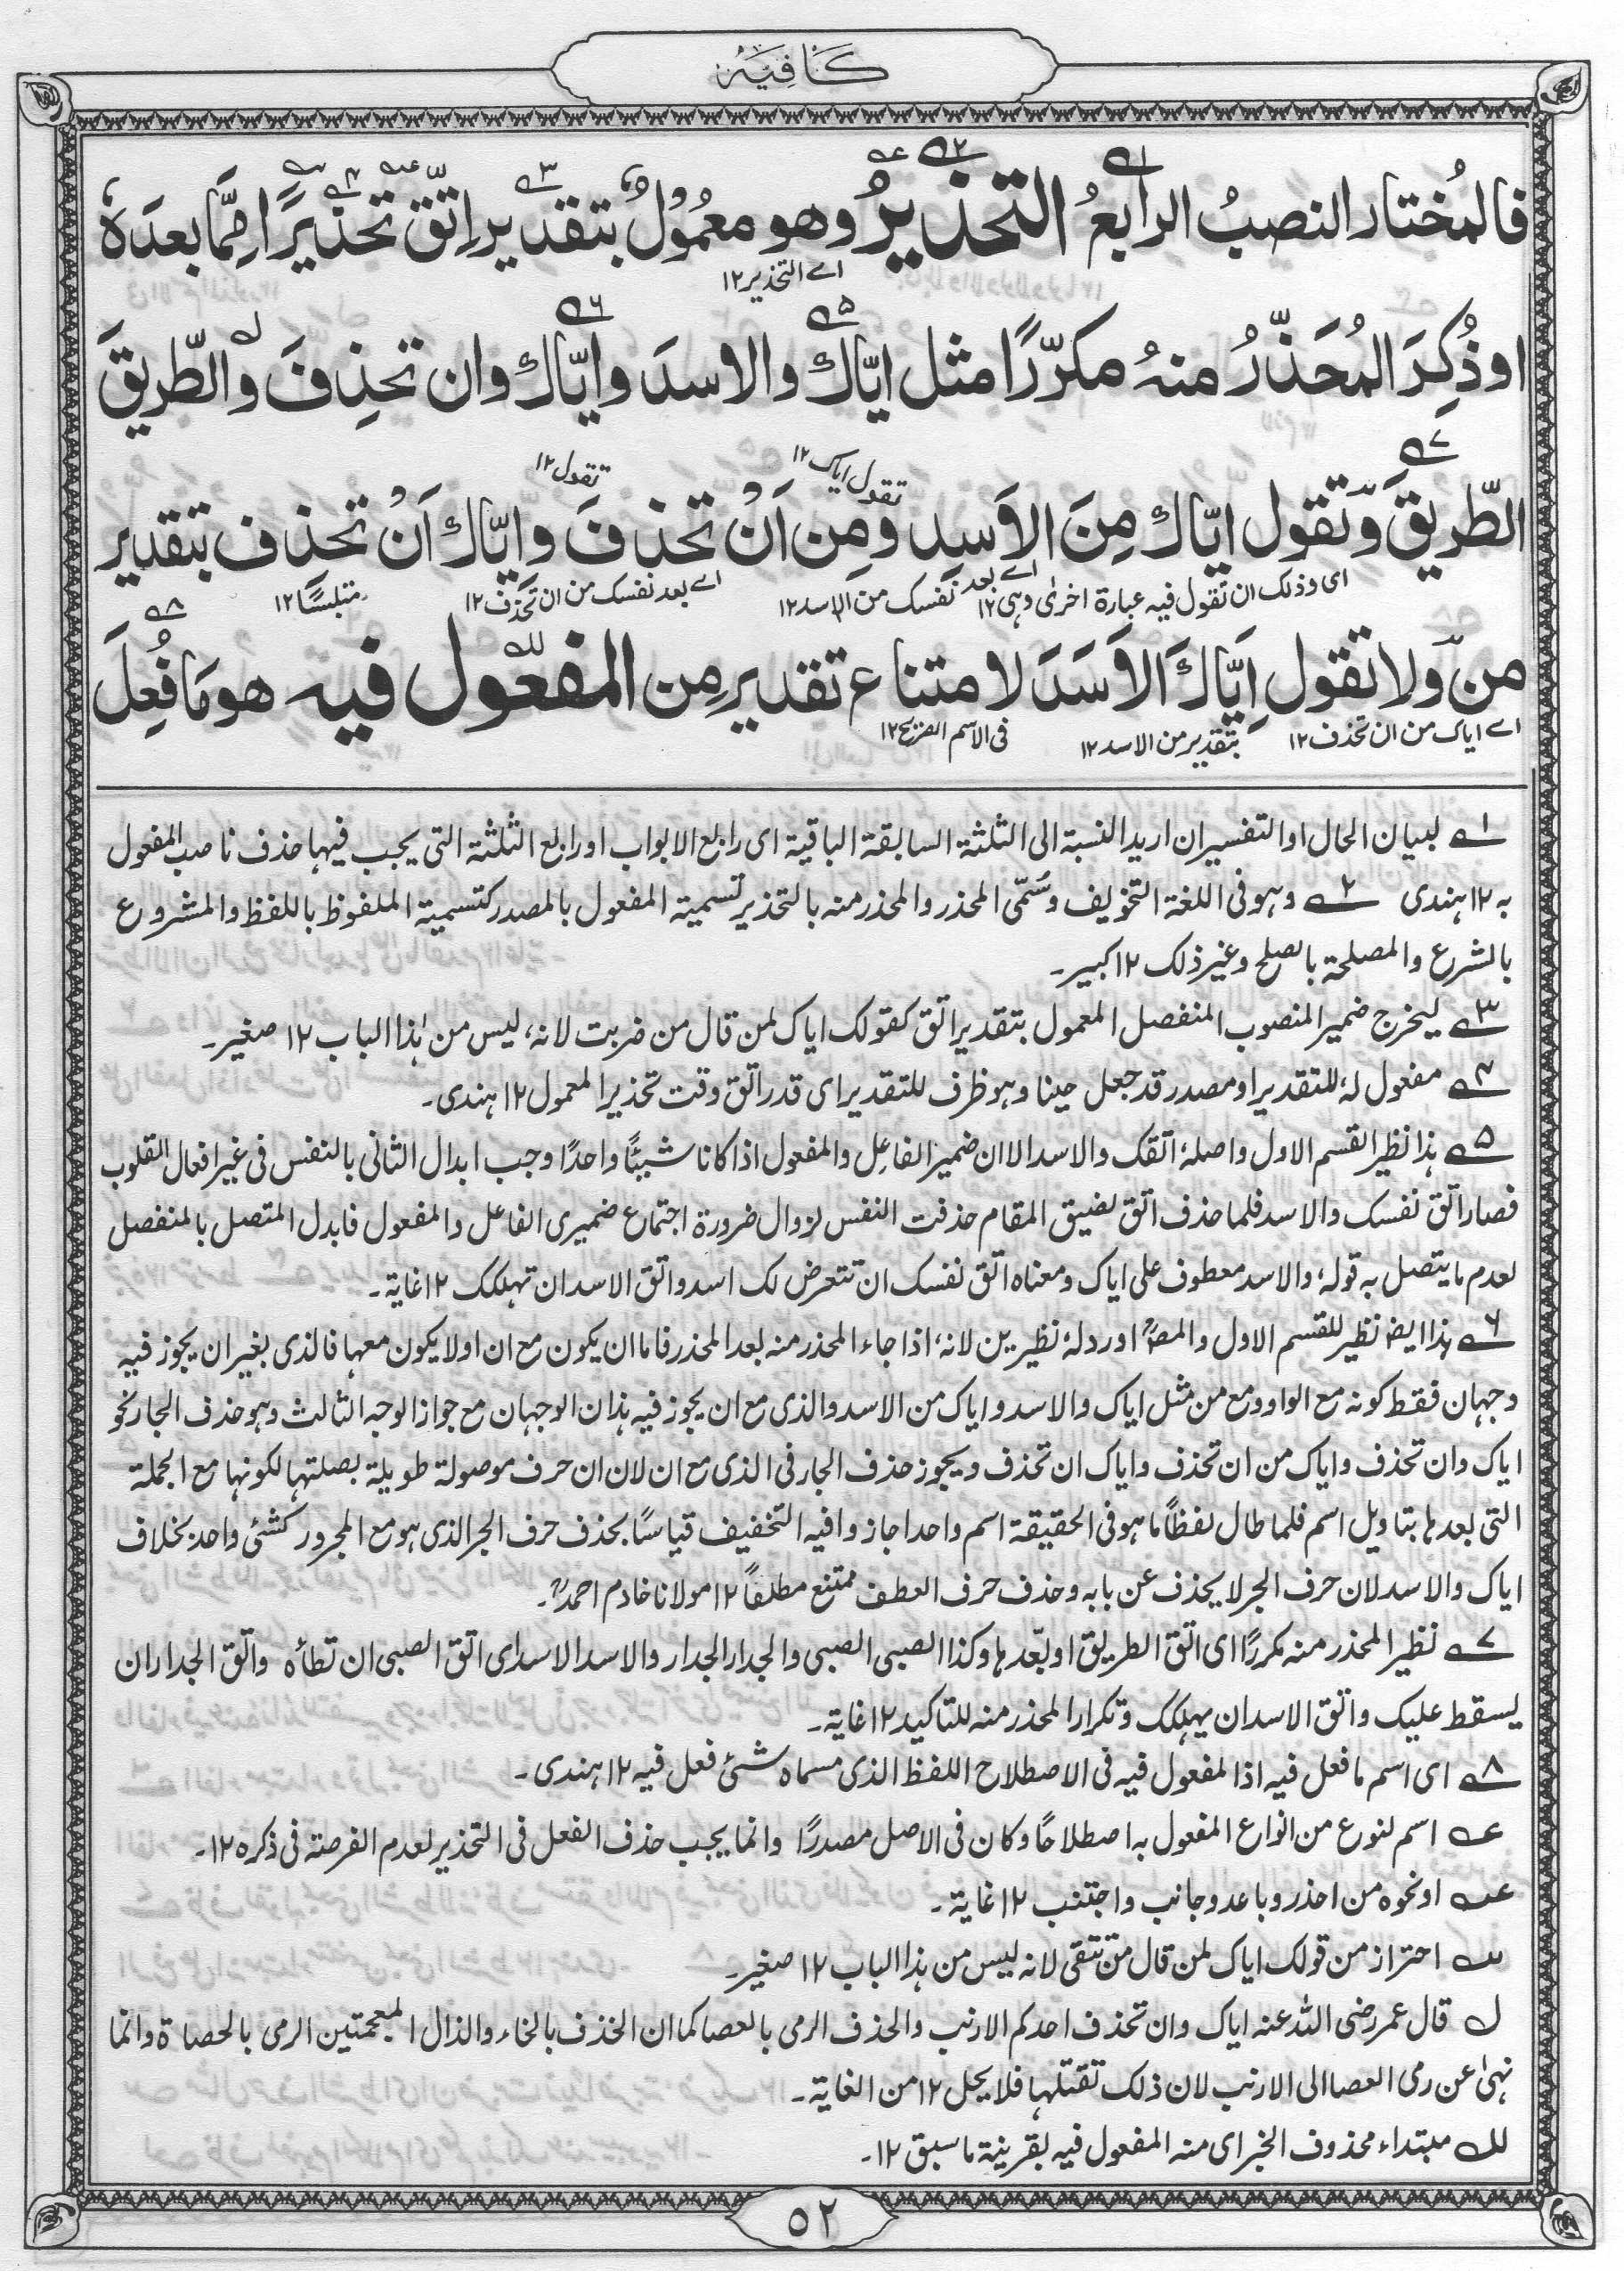 كَافِيَه
فالمُختار النصبُ الرابعُ التحذيرُ وهو معمُولٌ بتقدير اِتّقِ تحذيرًا مِمَّا بعدَهٗ
اے التحذير ١٢
او ذُكِرَ المُحَذَّرُ منهُ مكرّرًا مثل ايّاك والاسدَ وايّاك وان تحذِفَ والطّريقَ
تقول اياك ١٢ تقول ١٢
الطّريقَ وتقول ايّاك مِنَ الاَسدِ ومِن اَنْ تحذفَ وايّاك اَنْ تحذف بتقدير
اى وذلك ان تقول فيه عبارة اخرىٰ وہى ١٢ اے بعد نفسك من الاسد ١٢ اے بعد نفسك من ان تحذف ١٢ متلبسًا ١٢
مِن ولا تقول اِيّاكَ الاَسَدَ لامتناع تقدير مِن المفعول فيه هو مَا فُعِلَ
اے اياك من ان تحذف ١٢ بتقدير من الاسد ١٢ فى الاسم الصريح ١٢
١ لبيان الحال او التفسير ان اريد النسبة الى الثلثة السابقة الباقية اى رابع الابواب او رابع الثلثة التى يجب فيہا حذف ناصب المفعول
به ١٢ ہندى ٢ وہو فى اللغة التخويف وسُمّى المحذر والمحذر منه بالتحذير تسمية المفعول بالمصدر كتسمية الملفوظ باللفظ والمشروع
بالشرع والمصلحة بالصلح وغير ذلك ١٢ كبير۔
٣ ليخرج ضمير المنصوب المنفصل المعمول بتقدير اتق كقولك اياك لمن قال من ضربت لانہ، ليس من ہٰذا الباب ١٢ صغير۔
٤ مفعول لہٗ للتقدير او مصدر قد جعل حينا وہو ظرف للتقدير اى قدر اتق وقت تحذير المعمول ١٢ ہندى۔
٥ ہذا نظير القسم الاول واصلہٗ اتقك والاسد الا ان ضمير الفاعِل والمفعول اذا كانا شيئًا واحدًا وجب ابدال الثانى بالنفس فى غير افعال القلوب
فصار اتق نفسك والاسد فلما حذف اتق لضيق المقام حذفت النفس لزوال ضرورة اجتماع ضميرى الفاعل والمفعول فابدل المتصل بالمنفصل
لعدم ما يتصل به قولہ، والاسد معطوف على اياك ومعناه اتق نفسك ان تتعرض لك اسد واتق الاسد ان تهلكك ١٢ غاية۔
٦ ہذا ايضا نظير للقسم الاول والمصؒ اورد لہٗ نظيرين لانہ، اذا جاء المحذر منه بعد المحذر فاما ان يكون مع ان اولا يكون معہا فالذى بغير ان يجوز فيه
وجہان فقط كونه مع الواو ومع من مثل اياك والاسد واياك من الاسد والذى مع ان يجوز فيه ہذان الوجہان مع جواز الوجه الثالث وہو حذف الجار نحو
اياك وان تحذف واياك من ان تحذف واياك ان تحذف ويجوز حذف الجار فى الذى مع ان لان ان حرف موصولة طويلة بصلتہا لكونہا مع الجملة
التى بعدہا بتاويل اسم فلما طال لفظاً ما ہو فى الحقيقة اسم واحد اجازوا فيه التخفيف قياسًا بحذف حرف الجر الذى ہو مع المجرور كشئ واحد بخلاف
اياك والاسد لان حرف الجر لا يحذف عن بابه وحذف حرف العطف ممتنع مطلقاً ١٢ مولانا خادم احمدؒ۔
٧ نظير المحذر منه مكررًا اى اتق الطريق او بعّدہا وكذا الصبى الصبى والجدار الجدار والاسد الاسد اى اتق الصبى ان تطأه واتق الجدار ان
يسقط عليك واتق الاسد ان يہلكك وتكرار المحذر منه للتاكيد ١٢ غاية۔
٨ اى اسم ما فعل فيه اذ المفعول فيه فى الاصطلاح اللفظ الذى مسماه شئ فعل فيه ١٢ ہندى۔
عه اسم لنوع من انواع المفعول به اصطلاحًا وكان فى الاصل مصدرًا وانما يجب حذف الفعل فى التحذير لعدم الفرصة فى ذكره ١٢۔
عـه او نحوه من احذر وباعد وجانب واجتنب ١٢ غاية۔
سه احتراز من قولك اياك لمن قال من تتقى لانه ليس من ہذا الباب ١٢ صغير۔
ل قال عمر رضى الله عنه اياك وان تحذف احدكم الارنب والحذف الرمى بالعصا كما ان الخذف بالخاء والذال المعجمتين الرمى بالحصاة وانما
نہىٰ عن رمى العصا الى الارنب لان ذلك تقتلہا فلا يحل ١٢ من الغاية۔
لله مبتداء محذوف الخبر اى منه المفعول فيه بقرينة ما سبق ١٢۔
٥٢